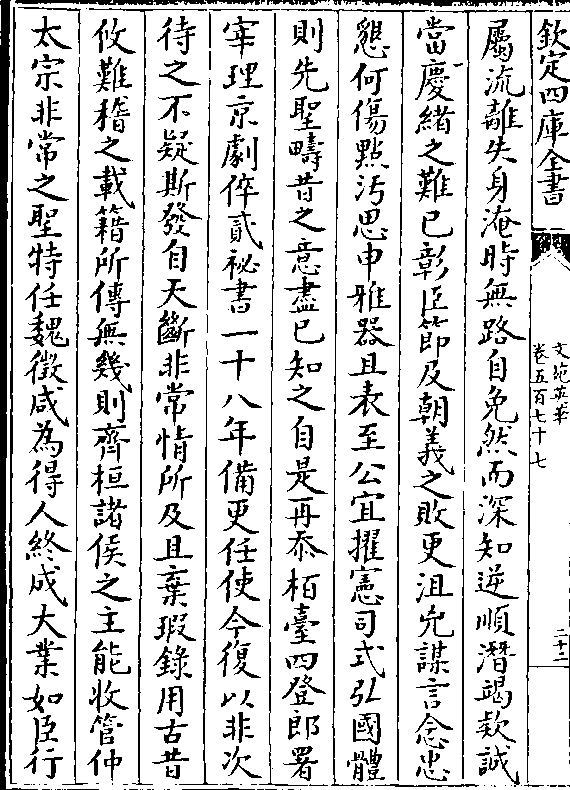 欽定四庫全書
文苑英華
卷五百七十七
二十二
屬流離失身淹時無路自免然而深知逆順潛竭欵誠
當慶緒之難已彰臣節及朝義之敗更沮兇謀言念忠
懇何傷點汚思申雅器且表至公宜擢憲司式弘國體
則先聖疇昔之意盡已知之自是再忝栢臺四登郎署
宰理京劇倅貳祕書一十八年備更任使今復以非次
待之不疑斯發自天斷非常情所及且棄瑕錄用古昔
攸難稽之載籍所傳無幾則齊桓諸侯之主能收管仲
太宗非常之聖特任魏徵咸為得人終成大業如臣行